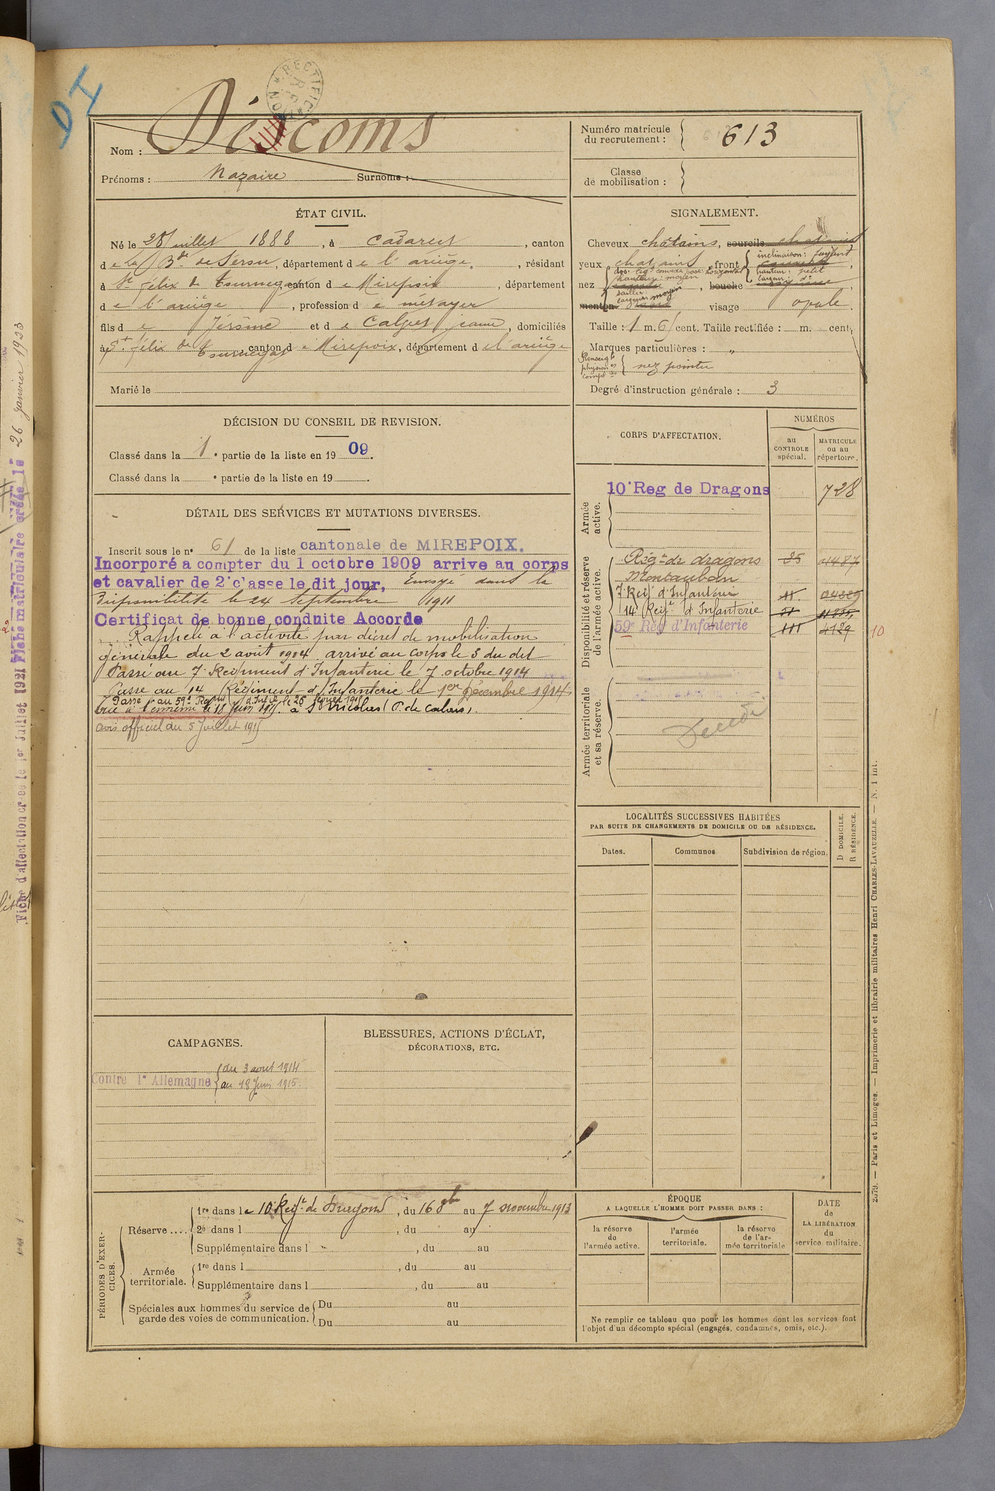 DI
RECTIFIC
Nom : Descoms
Prénoms : Nazaire Surnoms :
Numéro matricule
du recrutement : 613
Classe
de mobilisation :
ÉTAT CIVIL.
Né le 28 juillet 1888, à Cazarest, canton
de La Bde de Serou, département de l'ariège, résidant
à St félix de Tournegat canton de Mirepoix, département
de l'ariège, profession de metayer
fils de Jérôme et de Calpet jeanne, domiciliés
à St félix de Tournegat, canton de Mirepoix, département d el ariège
Marié le
SIGNALEMENT.
Cheveux chatains, sourcils chatains
yeux chatains, front inclinaison: fuyant
hauteur: petit
largeur: do
nez dos: rect. base: horizontal
hauteur: moyen
saillie
largeur moyen
bouche
menton visage ovale
Taille : 1 m. 61 cent. Taille rectifiée : m. cent.
Marques particulières : "
nez pointu
Degré d'instruction générale : 3
DÉCISION DU CONSEIL DE REVISION.
Classé dans la 1e partie de la liste en 1909.
Classé dans la e partie de la liste en 19 .
DÉTAIL DES SERVICES ET MUTATIONS DIVERSES.
Inscrit sous le no 61 de la liste cantonale de MIREPOIX.
Incorporé a compter du 1 octobre 1909 arrive au corps
et cavalier de 2e c'asse le dit jour, Envoyé dans la
disponibilité le 24 Septembre 1911
Certificat de bonne conduite Accorde
Rappelé à l'activité par décret de mobilisation
générale du 2 août 1914 arrivé au corps le 3 du dit
Passé au 7e Regiment d'Infanterie le 7 octobre 1914
Passé au 14 Régiment d'Infanterie le 1er Décembre 1914,
Passé au 59e Regim d'Infie le 26 fevrier 1915
tué à l'ennemi le 18 Juin 1915 à St Nicolas (P. de Calais).
avis officiel du 5 Juillet 1915
CORPS D'AFFECTATION.
NUMÉROS
au
CONTROLE
spécial.
MATRICULE
ou au
répertoire.
Armée
active.
10e Reg de Dragons 728
Disponibilité et réserve
de l'armée active.
Régt de dragons 25 01487
Montauban
7 Reijt d'Infanterie
14 Reijt d'Infanterie
59e Reg d'Infanterie
10
Armée territoriale
et sa réserve.
Décédé
LOCALITÉS SUCCESSIVES HABITÉES
PAR SUITE DE CHANGEMENTS DE DOMICILE OU DE RÉSIDENCE.
Dates. Communes Subdivision de région.
D DOMICILE.
R RÉSIDENCE.
CAMPAGNES.
Contre l'Allemagne du 3 aout 1914
au 18 Juin 1915
BLESSURES, ACTIONS D'ÉCLAT,
DÉCORATIONS, ETC.
PÉRIODES D'EXERCICES.
Réserve .... 1re dans le 10 Reijt de Dragons, du 16 8bre au 7 novembre 1913
2e dans l , du au
Supplémentaire dans l , du au
Armée
territoriale.
1re dans l , du au
Supplémentaire dans l , du au
Spéciales aux hommes du service de
garde des voies de communication.
Du au
Du au
ÉPOQUE
A LAQUELLE L'HOMME DOIT PASSER DANS :
la réserve
de
l'armée active.
l'armée
territoriale.
la réserve
de l'ar-
mée territoriale
DATE
de
LA LIBÉRATION
du
service militaire.
Ne remplir ce tableau que pour les hommes dont les services font
l'objet d'un décompte spécial (engagés, condamnés, omis, etc.).
2579. — Paris et Limoges. — Imprimerie et librairie militaires Henri CHARLES-LAVAUZELLE. — N. 1 int.
Fiche matriculaire créée le 26 janvier 1933
Fiche d'affectation créée le 1er Juillet 1921